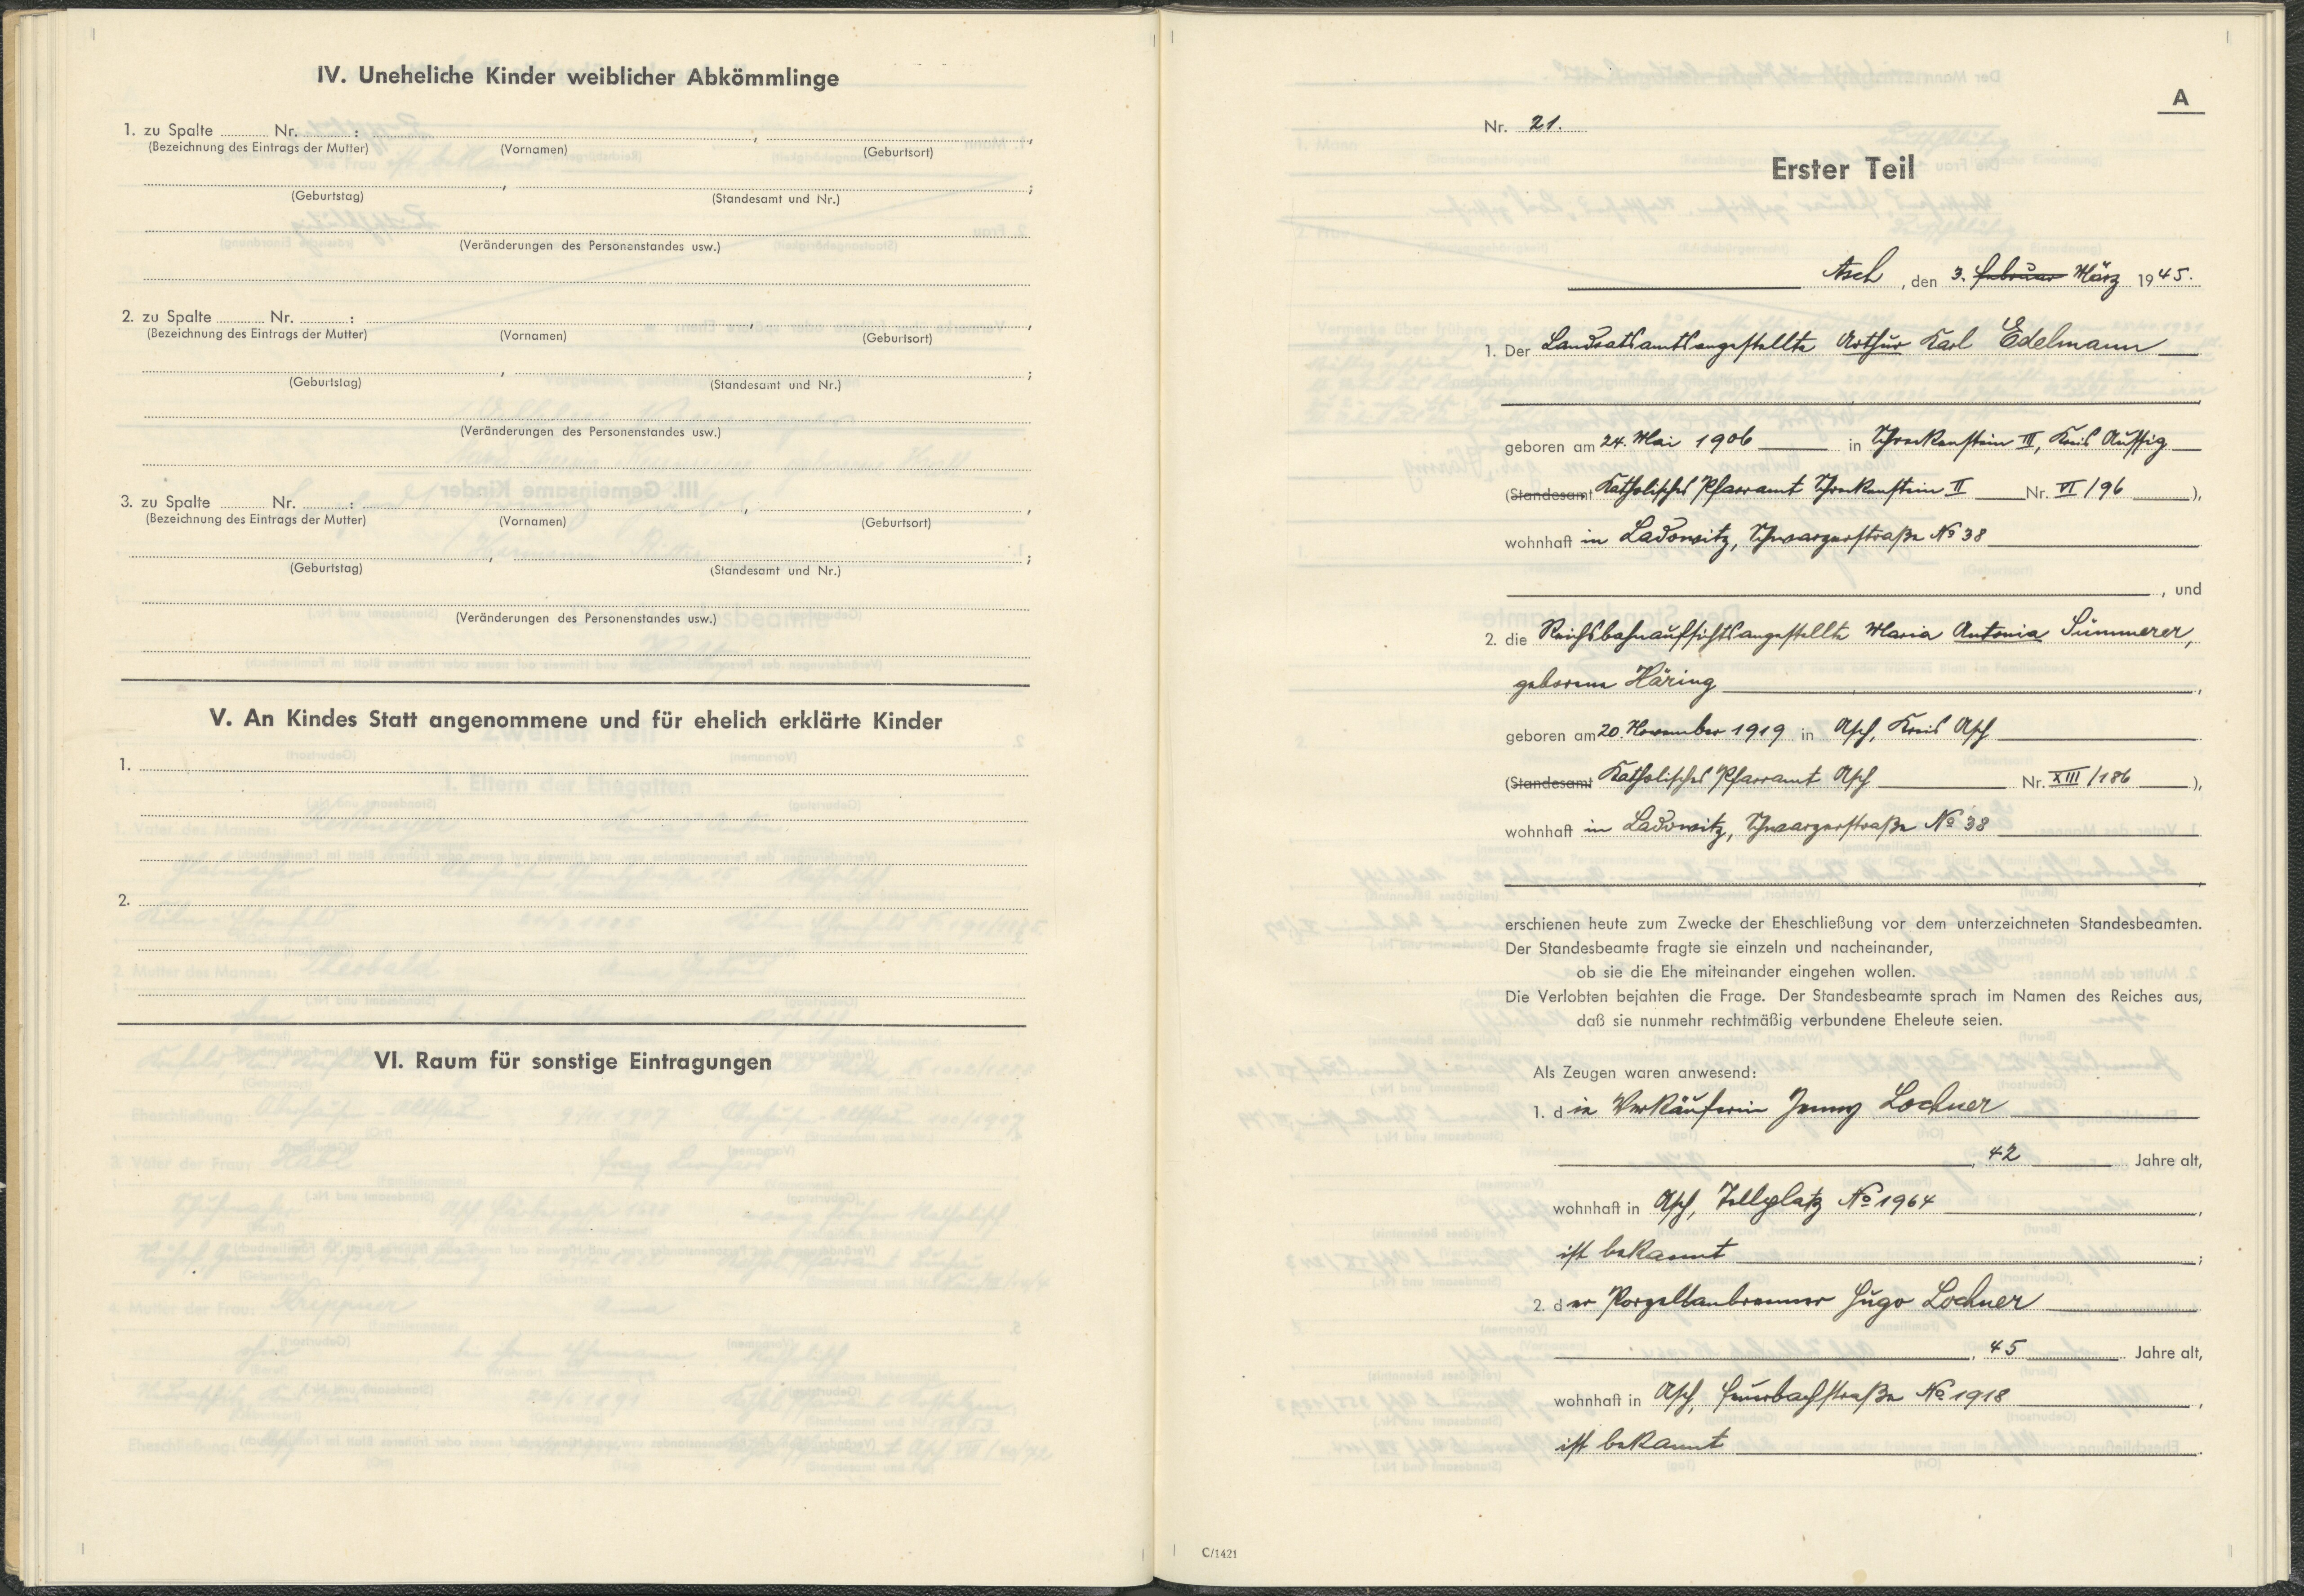 IV. Uneheliche Kinder weiblicher Abkömmlinge
1. zu Spalte Nr. : , ,
(Bezeichnung des Eintrags der Mutter) (Vornamen) (Geburtsort)
, ;
(Geburtstag) (Standesamt und Nr.)
(Veränderungen des Personenstandes usw.)
2. zu Spalte Nr. : , ,
(Bezeichnung des Eintrags der Mutter) (Vornamen) (Geburtsort)
, ;
(Geburtstag) (Standesamt und Nr.)
(Veränderungen des Personenstandes usw.)
3. zu Spalte Nr. : , ,
(Bezeichnung des Eintrags der Mutter) (Vornamen) (Geburtsort)
, ;
(Geburtstag) (Standesamt und Nr.)
(Veränderungen des Personenstandes usw.)
V. An Kindes Statt angenommene und für ehelich erklärte Kinder
1.
2.
VI. Raum für sonstige Eintragungen
A
Nr. 21.
Erster Teil
Asch, den 3. Februar März 1945.
1. Der Landratsamtsangestellte Arthur Karl Edelmann
geboren am 24. Mai 1906 in Schreckenstein III, Kreis Aussig
(Standesamt Katholisches Pfarramt Schreckenstein II Nr. VI/96),
wohnhaft in Ladowitz, Schwarzerstraße No 38
, und
2. die Reichsbahnaufsichtsangestellte Maria Antonia Sümmerer,
geborene Häring,
geboren am 20. November 1919 in Asch, Kreis Asch
(Standesamt Katholisches Pfarramt Asch Nr. XIII/186),
wohnhaft in Ladowitz, Schwarzerstraße No 38
erschienen heute zum Zwecke der Eheschließung vor dem unterzeichneten Standesbeamten.
Der Standesbeamte fragte sie einzeln und nacheinander,
ob sie die Ehe miteinander eingehen wollen.
Die Verlobten bejahten die Frage. Der Standesbeamte sprach im Namen des Reiches aus,
daß sie nunmehr rechtmäßig verbundene Eheleute seien.
Als Zeugen waren anwesend:
1. die Verkäuferin Jenny Lochner
, 42 Jahre alt,
wohnhaft in Asch, Tellplatz No 1964,
ist bekannt;
2. der Porzellanbrenner Hugo Lochner
, 45 Jahre alt,
wohnhaft in Asch, Feuerbachstraße No 1918,
ist bekannt.
C/1421